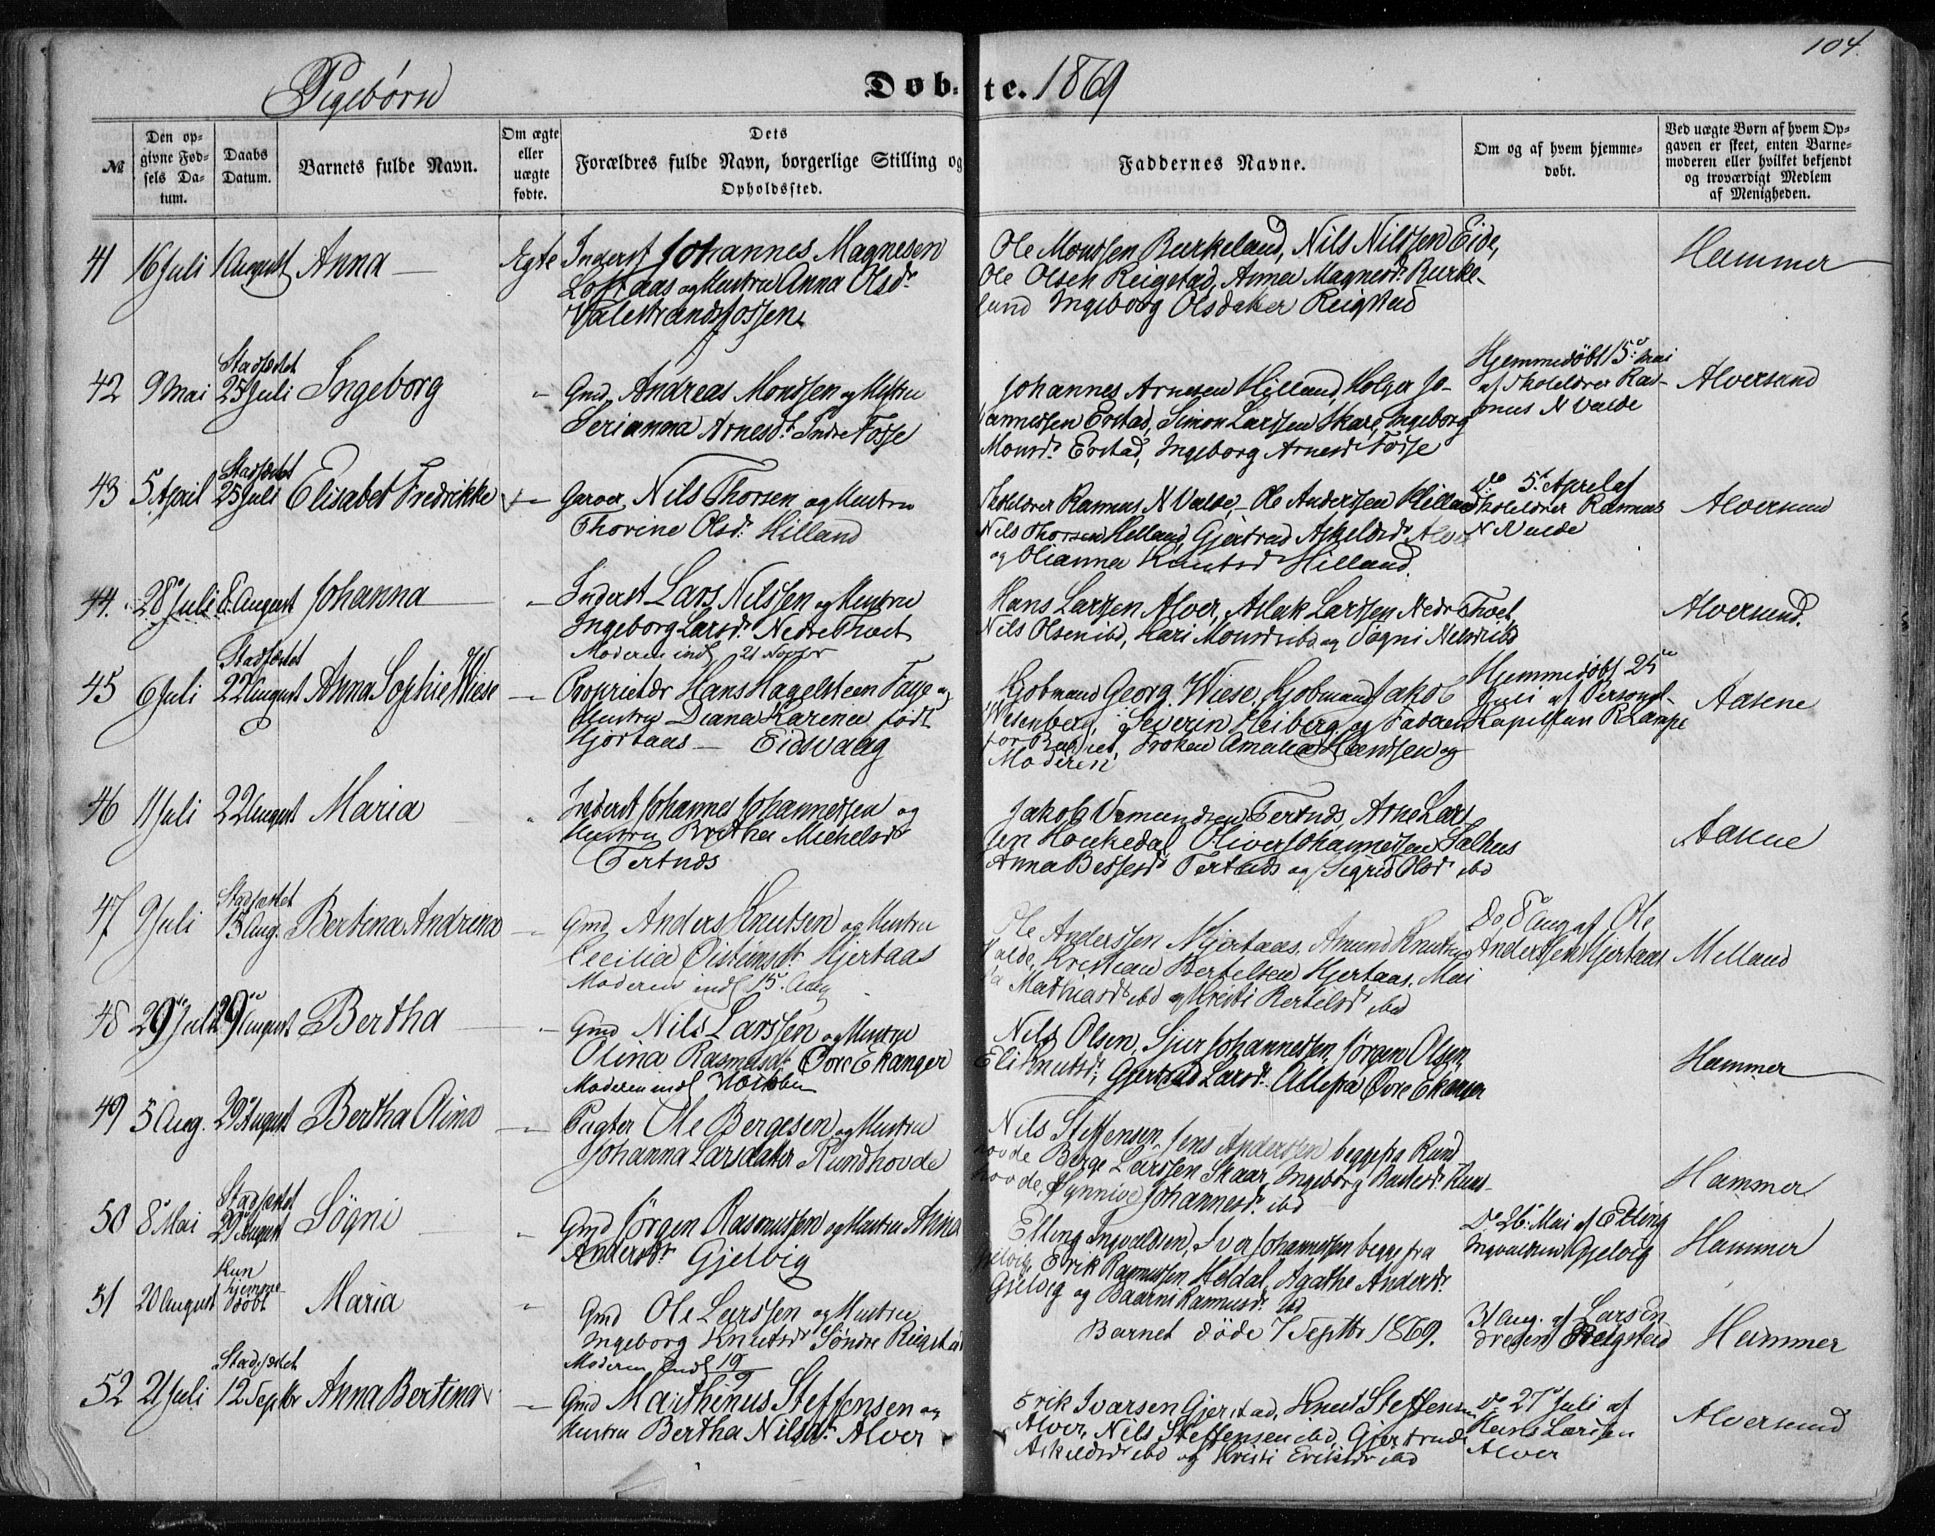 104.
Pigebørn
Døb-te. 1869
№
Den opgivne Fødsels Datum.
Daabs Datum.
Barnets fulde Navn.
Om ægte eller uægte fødte.
Dets Forældres fulde Navn, borgerlige Stilling og Opholdssted.
Faddernes Navne.
Om og af hvem hjemmedøbt.
Ved uægte Børn af hvem Opgaven er skeet, enten Barnemoderen eller hvilket bekjendt og troværdigt Medlem af Menigheden.
41 16 Juli 1 August Anna Ægte
Inderst Johannes Magnesen
Loftaas og Hustru Anna Olsdr
Valestrandsfossen
Ole Monssen Burkeland, Nils Nilssen Eide,
Ole Olsen Reigstad, Anna Magnesdr Burke-
land Ingeborg Olsdatter Reigstad
Hammer
42 9 Mai Stadfæstet 25 Juli Ingeborg "
Gmd Andreas Monssen og Hustru
Serianna Arnesdr Indre Fosse
Johannes Arnesen Hilland, Holger Jo-
hannessen Erstad, Simon Larssen Skare, Ingeborg
Monsdr Erstad, Ingeborg Arnesdr Fosse
Hjemmedøbt 15 Mai
af Skolelærer Ras-
mus N Valde
Alversund
43 5 April Stadfæstet 25 Juli Elisabet Fredrikke
Garver Nils Thorsen og Hustru
Thorine Olsdr Hilland
Skolelærer Rasmus N Valde, Ole Anderssen Hilland
Nils Thorsen Hilland, Gjertrud Askeldsdr Alver
og Olianna Knutsdr Hilland.
Do 5 April af
Skolelærer Rasmus
N Valde
Alversund
44. 28 Juli 8 August Johanna
Inderst Lars Nilssen og Hustru
Ingeborg Larsdr Nedre Tvet
Moderen indl 21 Novbr
Hans Larssen Alver, Aslak Larssen Nedre Tvet,
Nils Olsen ibd, Kari Monsdr ibd og Søgni Nilsdr ibd
Alversund.
45 6 Juli Stadfæstet 22 August Anna Sophie Wiese
Proprietær Hans Hagelsteen Faye og
Hustru Diana Karina født
Hjortaas — Eidsvaag
Kjøbmand Georg Wiese, Kjøbmand Jakob
Wesenberg, Severin Heiberg og Faderen
for Barnet, Frøken Amalia Hantssen og
Moderen
Hjemmedøbt 25
Juli af Personel-
Kapellan R Lampe
Aasene
46 11 Juli 22 August Maria
Inderst Johannes Johannessen og
Hustru Britha Michelsdr
Tertnæs
Jakob Vemundsen Tertnæs, Arne Lars
sen Haukedal, Oliver Johannessen Salhus
Anna Bessesdr Tertnæs og Sigrid Olsdr ibd
Aasene
47 9 Juli Stadfæstet 15 Aug. Bertina Andrina
Gmd Anders Knutsen og Hustru
Cecilia Øisteinsdr Hjertaas
Moderen indl 15 Aug
Ole Anderssen Hjertaas, Amund Knutsen
Valde, Kristian Bertelsen Hjertaas, Mari
a Mathiasdr ibd og Kristi Bertelsdr ibd
Do 8 Aug af Ole
Anderssen Hjertaas
Melland
48 29 Juli 29 August Bertha
Gmd Nils Larssen og Hustru
Olina Rasmusdr Øvre Ekanger
Moderen indl
Nils Olsen, Sjur Johannessen, Jørgen Olsen,
Eli Knutsdr, Gjertrud Larsdr Alle fra Øvre Ekanger
Hammer
49 5 Aug. 29 August Bertha Olina
Pagter Ole Bergesen og Hustru
Johanna Larsdatter Rundhovde
Nils Steffensen, Jens Andersen begge fra Rund
hovde Berge Larssen Skaar, Ingeborg Rund-
hovde, Synnive Johannesdr ibd
Hammer
50 8 Mai Stadfæstet 29 August Søgni
Gmd Jørgen Rasmussen og Hustru Anna
Andersdr Gjelvig
Elling Ingvaldsen, Iver Johannessen begge fra
Gjelvig, Erik Rasmussen Heldal, Agathe Andersdr
Gjelvig og Baarni Rasmusdr ibd
Do 26 Mai af Elling
Ingvaldsen Gjelvig
Hammer
51 20 August Kun hjemmedøbt Maria "
Gmd Ole Larssen og Hustru
Ingeborg Knutsdr Søndre Reigstad
Moderen indl 19/9
Barnet døde 7 Septbr 1869.
31 Aug. af Lars En
dresen Reigstad
Hammer
52 21 Juli Stadfæstet 12 Septbr Anna Bertina
Gmd Marthinus Steffensen og
Hustru Bertha Nilsdr Alver
Erik Ivarsen Gjerstad, Knud Steffensen
Alver, Nils Steffensen ibd, Gjertrud
Askeldsdr ibd og Kristi Eriksdr ibd
Do 27 Juli af
Hans Larssen
Alver
Alversund